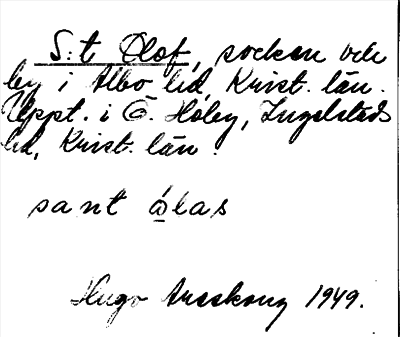 S:t Olof, socken och
by i Albo hd, Krist. län.
Uppt. i Ö. Hoby, Ingelstads
hd, Krist. län.
sant ålas
Hugo Areskoug 1949.